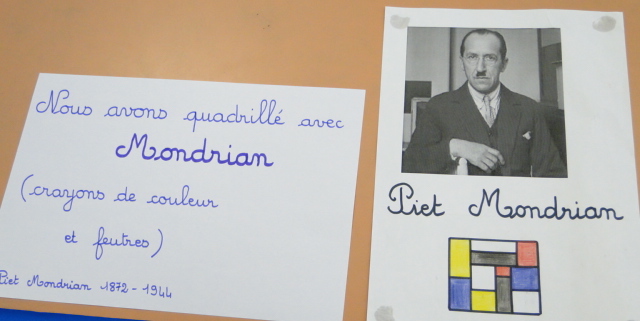 Nous avons quadrillé avec
Mondrian
(crayons de couleur
et feutres)
Piet Mondrian 1872 - 1944
Piet Mondrian